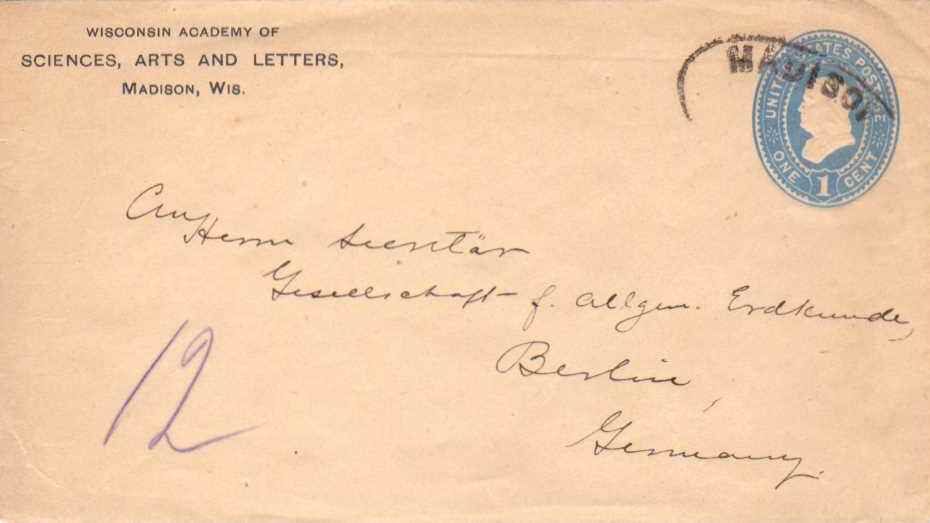 WISCONSIN ACADEMY OF
SCIENCES, ARTS AND LETTERS,
MADISON, WIS.
MADISON
UNITED STATES POSTAGE
ONE 1 CENT
An
Herrn Secretär
Gesellschaft f. Allgem. Erdkunde,
Berlin,
Germany.
12